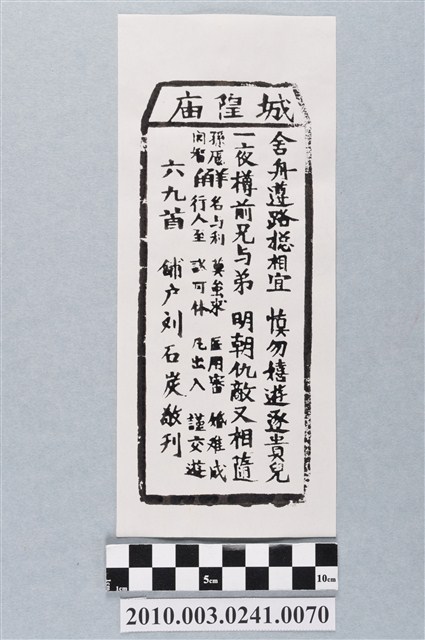 城隍庙
舍舟遵路摠相宜 慎勿嬉遊逐貴兒
一夜樽前兄与弟 明朝仇敵又相隨
孫龐 名与利 莫求 医用審 婚难成
行人至 訟可休 凡出入 謹交遊
六九首 舖户刘石炭敬刊
1cm 5cm 10cm
2010.003.0241.0070